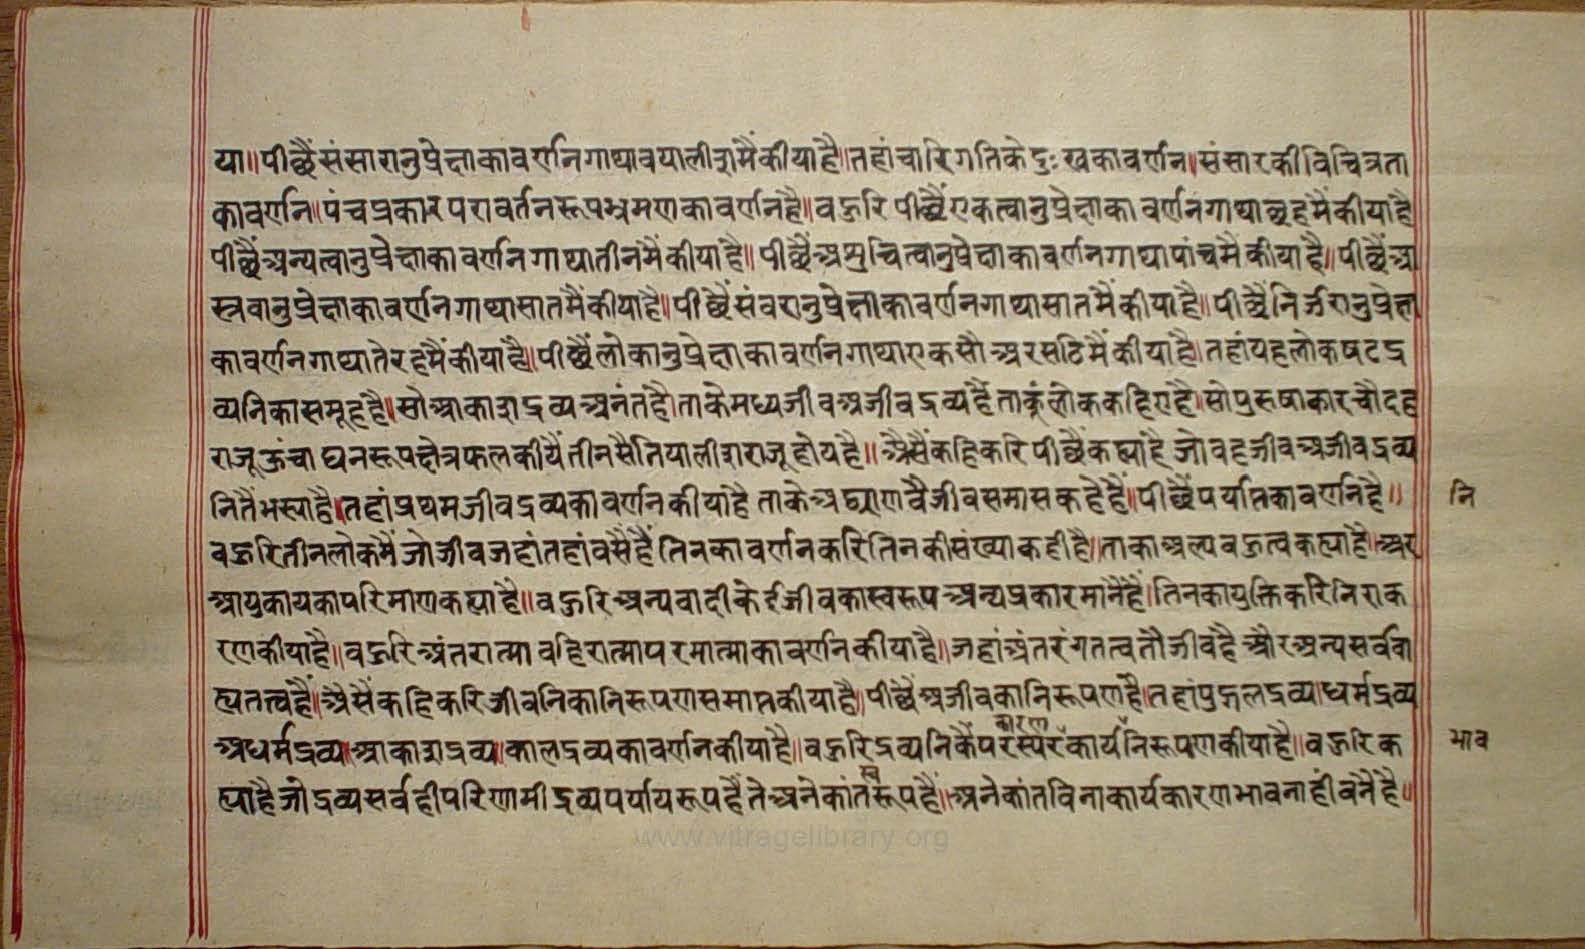 या॥पीछैंसंसारानुप्रेक्षाकावर्णनगाथावयालीशमैंकीयाहै॥तहांचारिगतिकेदुःखकावर्णन॥संसारकीविचित्रता
कावर्णन॥पंचप्रकारपरावर्तनरूपभ्रमणकावर्णनहै॥वहुरिपीछैंएकत्वानुप्रेक्षाकावर्णनगाथाछहमैंकीयाहै
पीछैंअन्यत्वानुप्रेक्षाकावर्णनगाथातीनमैंकीयाहै॥पीछैंअशुचित्वानुप्रेक्षाकावर्णनगाथापांचमैंकीयाहै॥पीछैंआ
स्त्रवानुप्रेक्षाकावर्णनगाथासातमैंकीयाहै॥पीछैंसंवरानुप्रेक्षाकावर्णनगाथासातमैंकीयाहै॥पीछैंनिर्जरानुप्रेक्षा
कावर्णनगाथातेरहमैंकीयाहै॥पीछैंलोकानुप्रेक्षाकावर्णनगाथाएकसौअरसठिमैंकीयाहै।तहांयहलोकषटद्र
व्यनिकासमूहहै॥सोआकाशद्रव्यअनंतहै।ताकेमध्यजीवअजीवद्रव्यहैंताकूंलोककहिएहै।सोपुरुषाकारचौदह
राजूऊंचाघनरूपक्षेत्रफलकीयैंतीनसैतियालीशराजूहोयहै॥अैसैंकहिकरिपीछैंकह्याहै जोवहजीवअजीवद्रव्य
नितैंभस्याहै।तहांप्रथमजीवद्रव्यकावर्णनकीयाहै ताकेअठ्याणवैजीवसमासकहेहैं॥पीछैंपर्याप्तकावर्णनहै॥
नि
वहुरितीनलोकमैंजोजीवजहांतहांवसैंहैंतिनकावर्णनकरितिनकीसंख्याकहीहै।ताकाअल्पवहुत्वकह्याहै।अर
आयुकायकापरिमाणकह्याहै॥वहुरिअन्यवादीकेईजीवकास्वरूपअन्यप्रकारमानैंहैं।तिनकायुक्तिकरिनिराक
रणकीयाहै॥वहुरिअंतरात्मावहिरात्मापरमात्माकावर्णनकीयाहै॥जहांअंतरंगतत्वतौजीवहै औरअन्यसर्ववा
ह्यतत्वहैं॥अैसैंकहिकरिजीवनिकानिरूपणसमाप्तकीयाहै।पीछैंअजीवकानिरूपणहै।तहांपुद्गलद्रव्य।धर्मद्रव्य
कारण
अधर्मद्रव्य।आकाशद्रव्य।कालद्रव्यकावर्णनकीयाहै॥वहुरिद्रव्यनिकैंपरस्परकार्यनिरूपणकीयाहै॥वहुरिक
भाव
स्व
ह्याहै जोद्रव्यसर्वहीपरिणामीद्रव्यपर्यायरूपहैंतेअनेकांतरूपहैं॥अनेकांतविनाकार्यकारणभावनाहींवनैहै॥
www.vitragelibrary.org